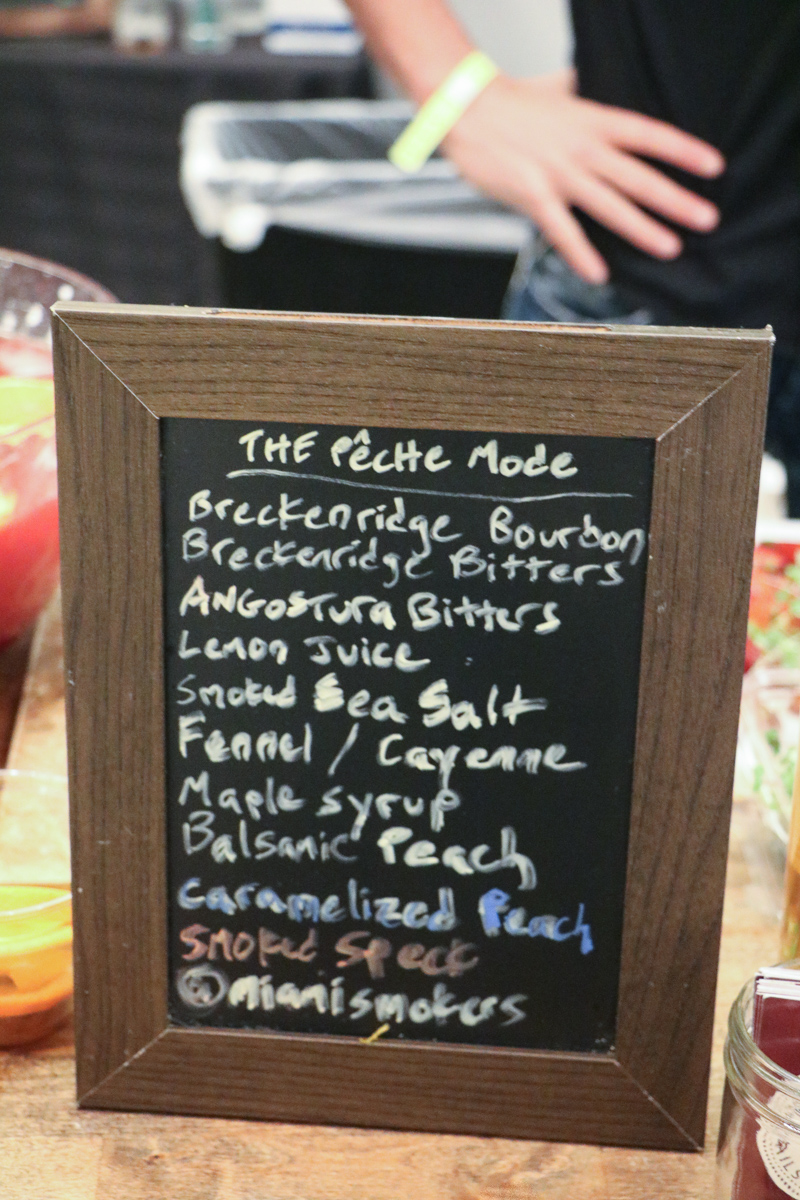 THE PÊCHE MODE
Breckenridge Bourbon
Breckenridge Bitters
ANGOSTURA Bitters
Lemon Juice
Smoked Sea Salt
Fennel / Cayenne
Maple syrup
Balsamic Peach
Caramelized Peach
Smoked Speck
@miamismokers